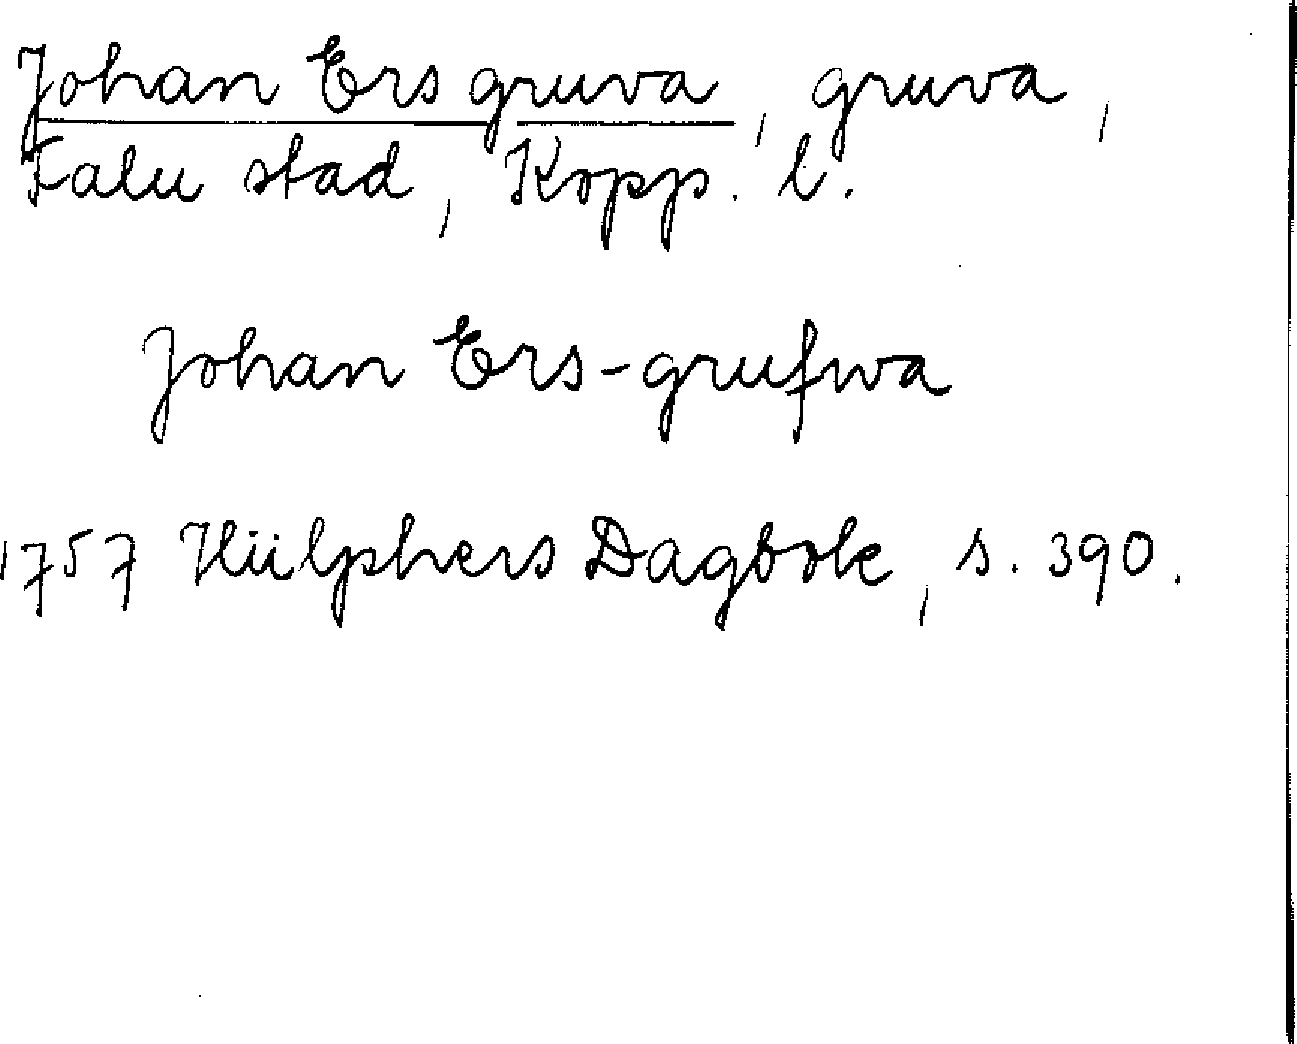 Johan Ers gruva, gruva,
Falu stad, Kopp. l.
Johan Ers-grufwa
1757 Hülphers Dagbok, s. 390.